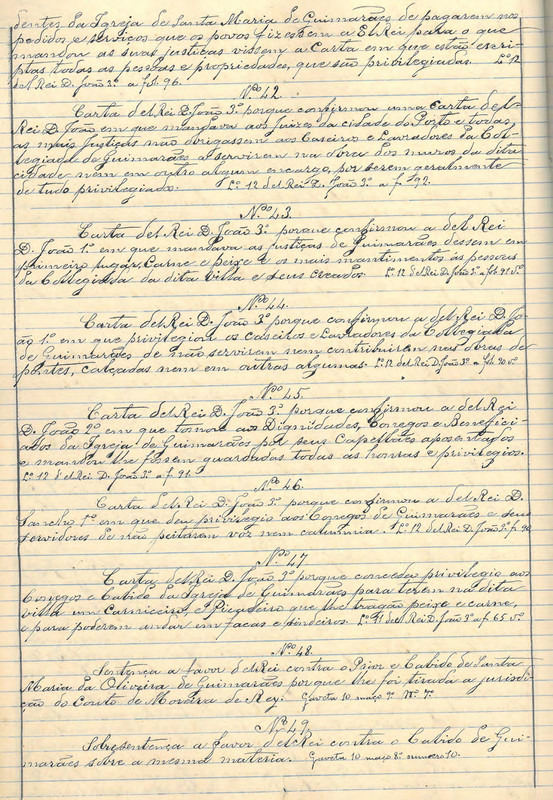 dentes da Igreja de Santa Maria de Guimarães de pagarem nos
pedidos e serviços que os povos fizessem a El Rei para o que
mandou as suas justiças vissem a Carta em que estão escri-
ptas todas as pessoas e propriedades, que são privilegiadas. L.º 12
del Rei D. João 3º a folº 96.
Nº 42
Carta del Rei D. João 3º porque confirmou uma Carta del-
Rei D. João em que mandava aos Juizes da cidade do Porto e todas,
as mais Justiças não obrigassem aos Caseiros e Lavradores da Col-
legiada de Guimarães a servirem na obra dos muros da dita
cidade nem em outro algum encargo, por serem geralmente
de tudo privilegiados. L.º 12 del Rei D. João 3º a fº 92.
Nº 43
Carta del Rei D. João 3º porque confirmou a del Rei
D. João 1º em que mandava as justiças de Guimarães dessem em
primeiro lugar Carne e peixe e os mais mantimentos ás pessoas
da Collegiada da dita villa e seus creados. L.º 12 del Rei D. João 3º a folº 91 vº
Nº 44.
Carta del Rei D. João 3º porque confirmou a del Rei D. Jo-
ão 1º em que privilegiou os caseiros e Lavradores da Collegiada
de Guimarães de não servirem nem contribuirem nas obras de
pontes, calçadas nem em outras algumas. L.º 12 del Rei D. João 3º a fol. 90 vº
Nº 45
Carta del Rei D. João 3º porque confirmou a del Rei
D. João 2º em que tomou aos Dignidades, Conegos e Benefici-
ados da Igreja de Guimarães por seus Capellães aposentados
e mandou lhe fossem guardadas todas as honras e privilegios.
L.º 12 del Rei D. João 3º a f. 91.
Nº 46
Carta del Rei D. João 3º porque confirmou a del Rei D.
Sancho 1º em que deu privilegio aos Conegos de Guimarães e seus
servidores de não peitarem voz nem calumnia. L.º 12 del Rei D. João 3º f. 90
Nº 47
Carta del Rei D. João 3º porque concedeu privilegio aos
Conegos e Cabido da Igreja de Guimarães para terem na dita
villa um Carniceiro, e Picadeiro que lhe tragão peixe e carne,
e para poderem andar em facas e sindeiros. L.º 51 del Rei D. João 3º a f. 65 vº
Nº 48.
Sentença a favor del Rei contra o Prior e Cabido de Santa
Maria da Oliveira de Guimarães porque lhe foi tirada a jurisdi-
ção do Couto de Moreira de Rey. Gaveta 10 maço 7º Nº 7.
Nº 49
Sobresentença a favor del Rei contra o Cabido de Gui-
marães sobre a mesma materia. Gaveta 10 maço 8º numero 10.